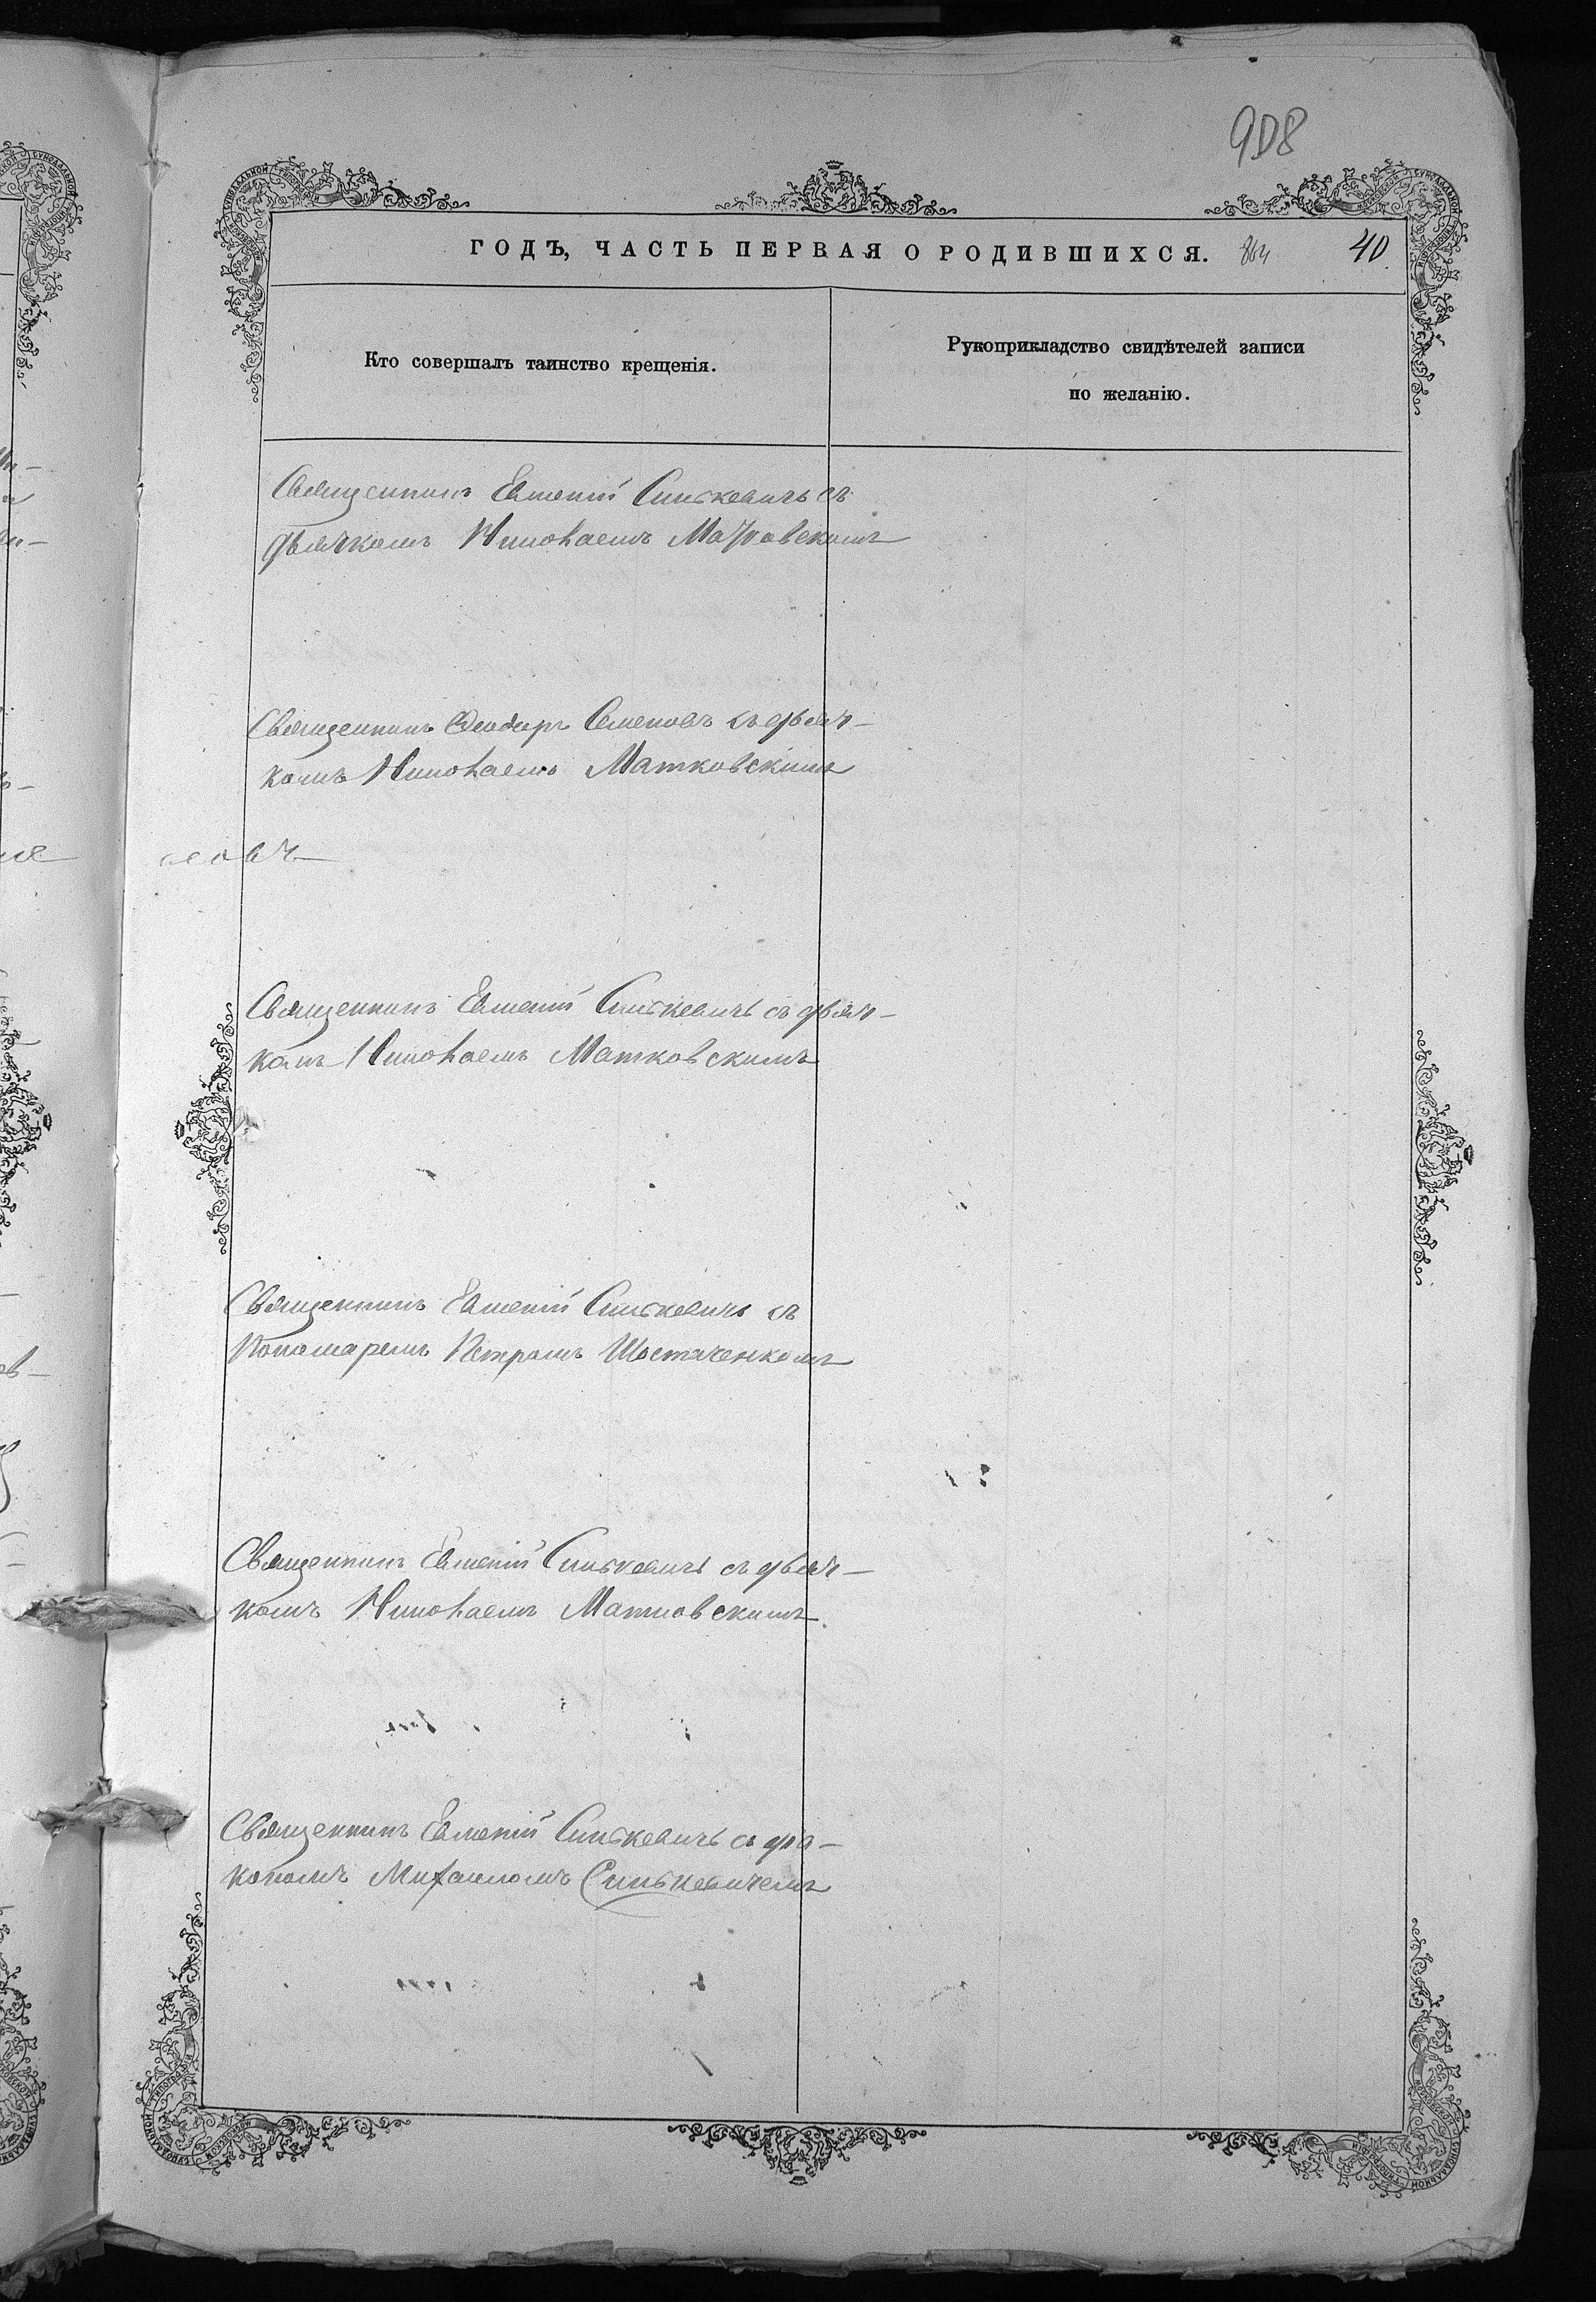 908
ГОДЪ, ЧАСТЬ ПЕРВАЯ О РОДИВШИХСЯ. 864 40
Кто совершалъ таинство крещенія.
Рукоприкладство свидѣтелей записи
по желанію.
Священникъ Евменій Синькевичъ съ
дьячкомъ Николаемъ Матковскимъ
Священникъ Ѳеодоръ Семеновъ съ дьяч-
комъ Николаемъ Матковскимъ
Священникъ Евменій Синькевичъ съ дьяч-
комъ Николаемъ Матковскимъ
Священникъ Евменій Синькевичъ съ
Пономаремъ Петромъ Шостаченкомъ
Священникъ Евменій Синькевичъ съ дьяч-
комъ Николаемъ Матковскимъ
Священникъ Евменій Синькевичъ съ діа-
кономъ Михаиломъ Синькевичемъ